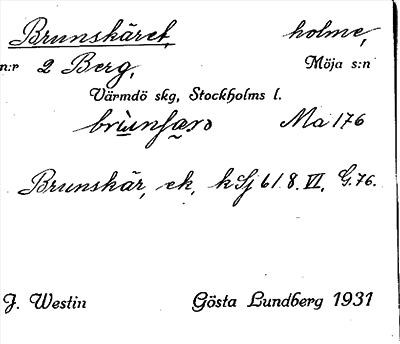 Brunskäret, holme,
n:r 2 Berg, Möja s:n
Värmdö skg, Stockholms l.
Ma 176
Brunskär, ek, kSj 61. 8. VI, G. 76.
J. Westin Gösta Lundberg 1931